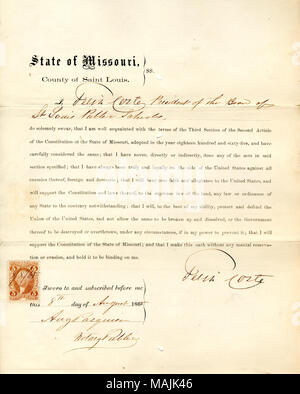 State of Missouri,
County of Saint Louis.
SS.
I, Felix Coste, President of the Board of
St Louis Public Schools
do solemnly swear, that I am well acquainted with the terms of the Third Section of the Second Article
of the Constitution of the State of Missouri, adopted in the year eighteen hundred and sixty-five, and
have carefully considered the same; that I have never, directly or indirectly, done any of the acts in said
section specified; that I have always been truly and loyally on the side of the United States against all
enemies thereof, foreign and domestic; that I will bear true faith and allegiance to the United States, and will
support the Constitution and laws thereof, as the supreme law of the land, any law or ordinance of
any State to the contrary notwithstanding; that I will, to the best of my ability, protect and defend the
Union of the United States, and not allow the same to be broken up and dissolved, or the Government
thereof to be destroyed or overthrown, under any circumstances, if in my power to prevent it; that I will
support the Constitution of the State of Missouri; and that I make this oath without any mental reservation
or evasion, and hold it to be binding on me.
Felix Coste
Sworn to and subscribed before me
this 8th day of August 186
Notary Public
alamy
Image ID: MAJK46
www.alamy.com